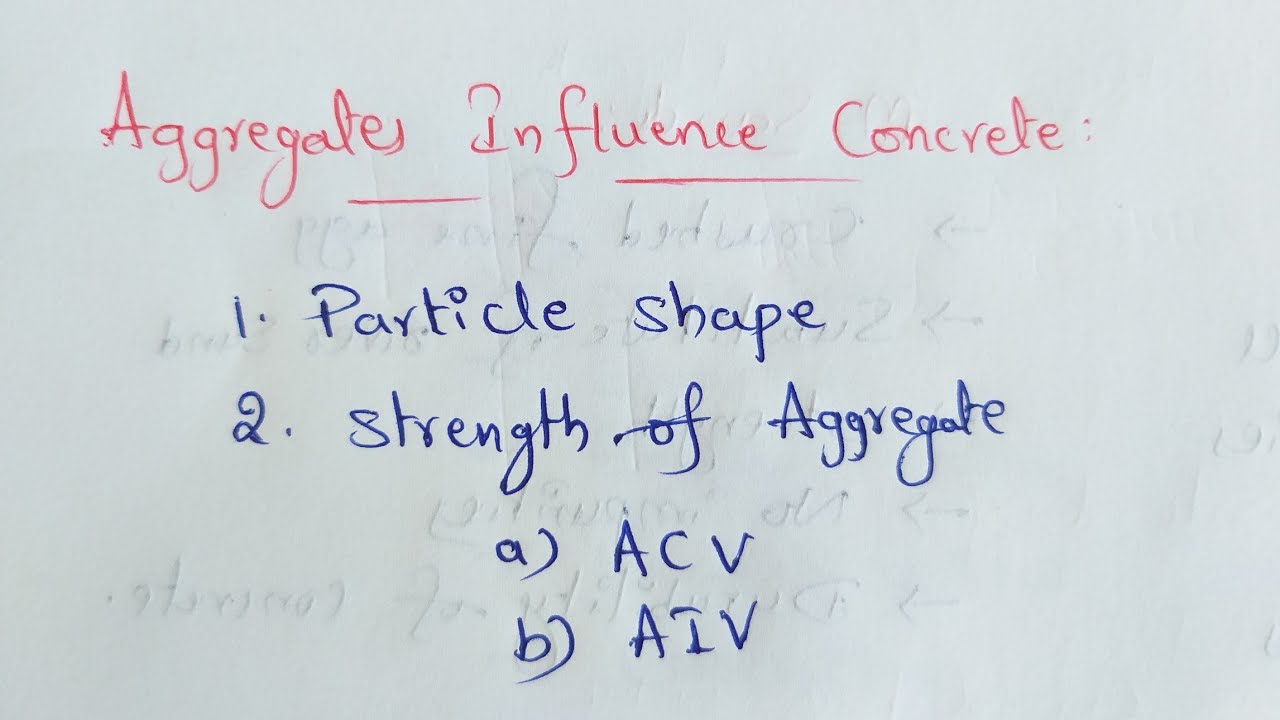 Aggregates Influence Concrete:
1. Particle shape
2. Strength of Aggregate
a) ACV
b) AIV